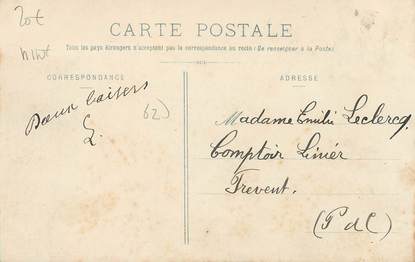 20€
CARTE POSTALE
Tous les pays étrangers n'acceptent pas la correspondance au recto (Se renseigner à la Poste)
CORRESPONDANCE
ADRESSE
Doux baisers
L.
62)
Madame Emilie Leclercq
Comptoir Linier
Frevent.
(P d C)